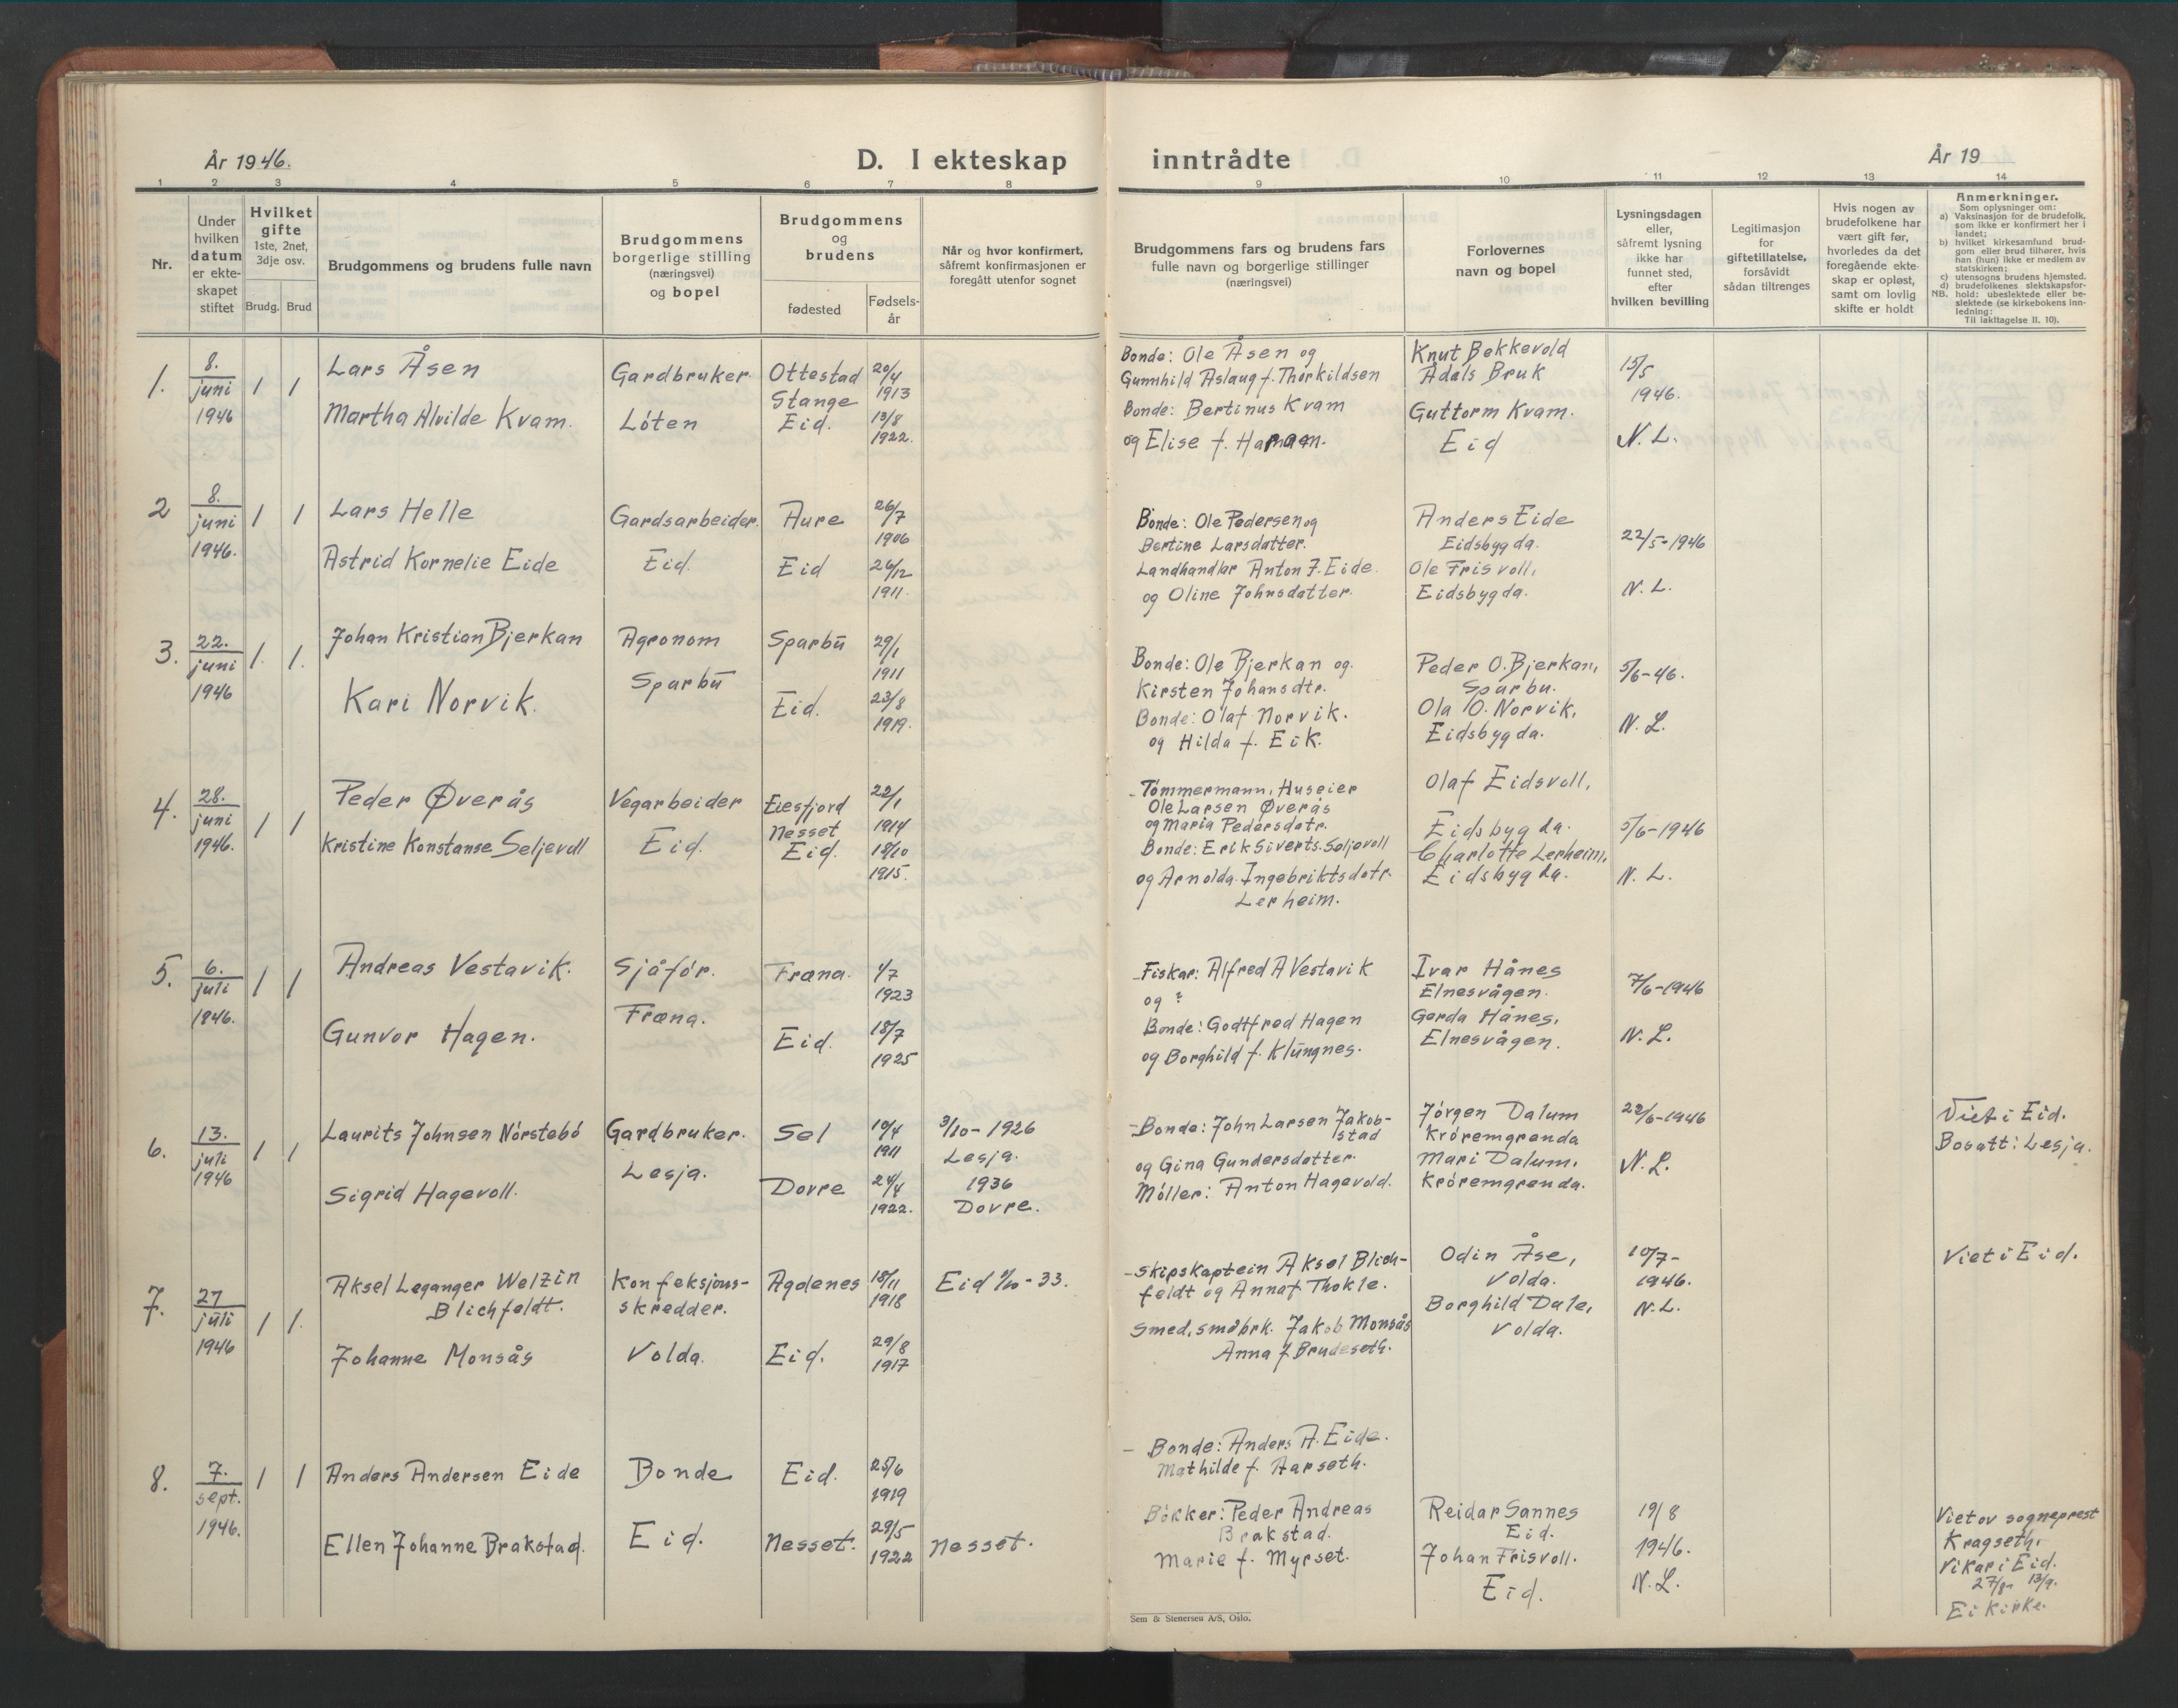 År 1946.
D. I ekteskap inntrådte
År 19
1 2 3 4 5 6 7 8 9 10 11 12 13 14
Nr.
Under hvilken datum er ekte-skapet stiftet
Hvilket gifte
1ste, 2net, 3dje osv.
Brudg. Brud
Brudgommens og brudens fulle navn
Brudgommens borgerlige stilling (næringsvei) og bopel
Brudgommens og brudens
fødested
Fødsels-år
Når og hvor konfirmert, såfremt konfirmasjonen er foregått utenfor sognet
Brudgommens fars og brudens fars fulle navn og borgerlige stillinger (næringsvei)
Forlovernes navn og bopel
Lysningsdagen eller, såfremt lysning ikke har funnet sted, efter hvilken bevilling
Legitimasjon for giftetillatelse, forsåvidt sådan tiltrenges
Hvis nogen av brudefolkene har vært gift før, hvorledes da det foregående ekte-skap er opløst, samt om lovlig skifte er holdt
Anmerkninger.
Som oplysninger om:
a) Vaksinasjon for de brudefolk, som ikke er konfirmert her i landet;
b) hvilket kirkesamfund brud-gom eller brud tilhører, hvis han (hun) ikke er medlem av statskirken;
c) utensogns brudens hjemsted.
d) brudefolkenes slektskapsfor-hold: ubeslektede eller be-slektede (se kirkebokens inn-ledning:
NB. Til iakttagelse II. 10).
1.
8.
juni
1946
1 1
Lars Åsen
Martha Alvilde Kvam.
Gardbruker.
Löten
Ottestad
Stange
Eid.
20/4
1913
13/8
1922.
Bonde: Ole Åsen og
Gunnhild Aslaug f. Thorkildsen
Bonde: Bertinus Kvam
og Elise f.
Knut Bekkevold
Ådals Bruk
Guttorm Kvam.
Eid
15/5
1946.
N. L.
2
8.
juni
1946.
1 1
Lars Helle
Astrid Kornelie Eide
Gardsarbeider.
Eid.
Aure
Eid
26/7
1906
26/12
1911.
Bonde: Ole Pedersen og
Bertine Larsdatter.
Landhandlar Anton J. Eide.
og Oline Johnsdatter.
Anders Eide
Eidsbygda.
Ole Frisvoll,
Eidsbygda.
22/5-1946
N. L.
3.
22.
juni
1946
1. 1.
Johan Kristian Bjerkan
Kari Norvik.
Agronom
Sparbū
Sparbū
Eid.
29/1
1911
23/8
1919.
Bonde: Ole Bjerkan og.
Kirsten Johansdtr.
Bonde: Olaf Norvik.
og Hilda f. Eik.
Peder O. Bjerkan,
Sparbu.
Ola O. Norvik,
Eidsbygda.
5/6-46.
N. L.
4.
28.
juni
1946.
1 1
Peder Øverås
Kristine Konstanse Seljevoll
Vegarbeider
Eid.
Eiesfjord
Nesset
Eid.
22/1
1914
18/10
1915.
Tömmermann, Huseier
Ole Larsen Øverås
og Maria Pedersdatr.
Bonde: Erik Siverts. Seljevoll
og Arnolda. Ingebriktsdatr.
Lerheim.
Olaf Eidsvoll,
Eidsbygda.
Charlotte Lerheim,
Eidsbygda.
5/6-1946
N. L.
5.
6.
juli
1946.
1 1
Andreas Vestavik.
Gunvor Hagen.
Sjåför.
Fræna.
Fræna.
Eid.
1/7
1923
18/7
1925
Fiskar: Alfred A Vestavik
og ?
Bonde: Godtfred Hagen
og Borghild f. Klūngnes.
Ivar Hånes
Elnesvågen.
Gerda Hånes,
Elnesvågen.
7/6-1946
N. L.
6.
13.
juli
1946
1 1
Laurits Johnsen Nörstebö
Sigrid Hagevoll.
Gardbruker.
Lesja.
Sel
Dovre
10/4
1911
24/4
1922.
3/10-1926
Lesja.
1936
Dovre.
Bonde: John Larsen Jakob-
stad
og Gina Gundersdatter.
Möller: Anton Hagevold.
Jörgen Dalum
Kröremgrenda
Mari Dalum,
Kröremgrenda.
22/6-1946
N. L.
Viet i Eid.
Bosatt: Lesja.
7.
27
juli
1946
1 1.
Aksel Leganger Welzin
Blichfeldt.
Johanne Monsås
Konfeksjons-
skredder.
Volda.
Agdenes
Eid.
18/11
1918
29/8
1917
Eid 1/10-33.
Skipskaptein Aksel Blich-
feldt og Anna f. Thokle.
Smed, småbrk. Jakob Monsås
Anna f Brudeseth.
Odin Åse,
Volda.
Borghild Dale,
Volda.
10/7-
1946.
N. L.
Viet i Eid.
8.
7.
sept.
1946.
1 1
Anders Andersen Eide
Ellen Johanne Brakstad.
Bonde
Eid.
Eid.
Nesset.
25/6
1919
29/5
1922
Nesset.
Bonde: Anders A. Eide.
Mathilde f. Aarseth.
Bökker: Peder Andreas
Brakstad.
Marie f. Myrset.
Reidar Sannes
Eid.
Johan Frisvoll.
Eid.
19/8
1946.
N. L.
Viet av sogneprest
Kragseth,
Vikar i Eid.
13/9.
Ei kirke.
Sem & Stenersen A/S, Oslo.